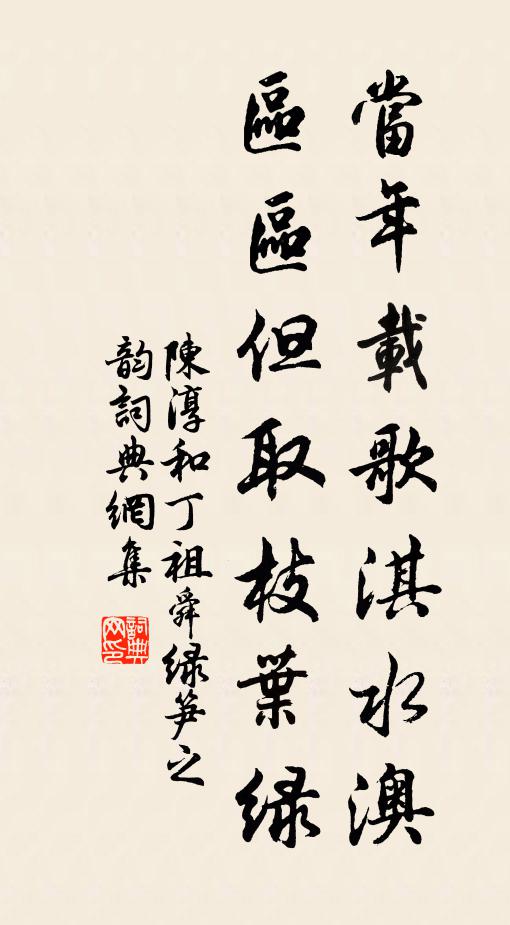 當年載歌淇水澳
區區但取枝葉綠
陳淳和丁祖舜綠笋之
韵詞典網集
詞典網印